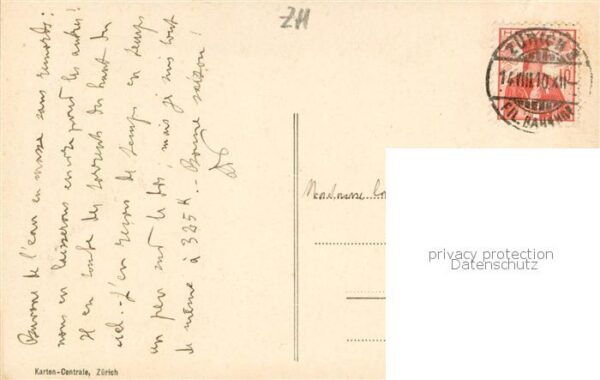 ZH
ZÜRICH
14.VIII.10.XII
FIL. BAHNHOF
HELVETIA
10
Buvons de l'eau en masse sans remords;
nous en laisserons encore pour les autres!
Il en tombe des torrents du haut du
ciel. - J'en reçois de temps en temps
un peu sur le dos, mais je suis tout
de même à 325 K. - Bonne saison!
Madame
privacy protection
Datenschutz
Karten-Centrale, Zürich